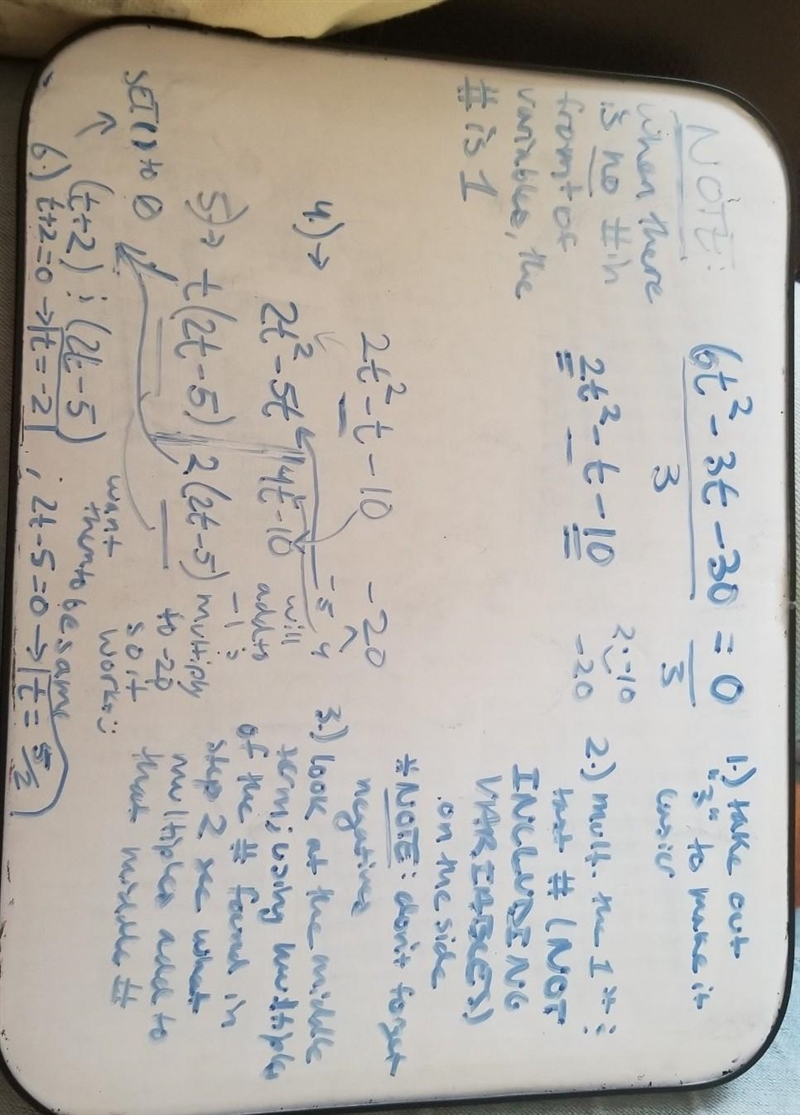 NOTE:
when there
is no # in
front of
variable, the
# is 1
6t² - 3t - 30 = 0
3 3
2t² - t - 10
2·-10
-20
1.) take out
"3" to make it
easier
2.) mult. the 1st &
last # (NOT
INCLUDING
VARIABLES)
on the side
*NOTE: don't forget
negatives
3.) look at the middle
term; using multiples
of the # found in
step 2 see what
multiples add to
that middle #
2t² - t - 10
-20
-5 4
4.) → 2t² - 5t 4t - 10
will
add to
-1 &
multiply
to -20
so it
works :)
5) → t(2t - 5) 2(2t - 5)
want
them to be same
(t+2) ; (2t - 5)
SET () to 0
6.) t+2=0 → t = -2 ; 2t - 5 = 0 → t = 5/2